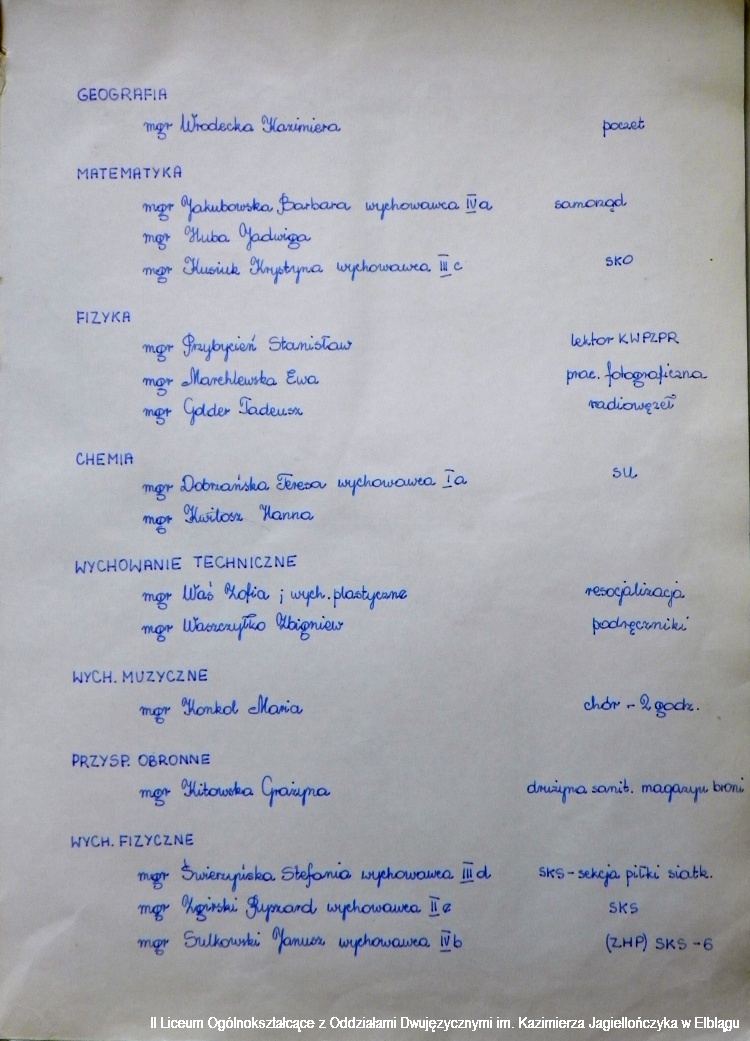 GEOGRAFIA
mgr Wrodecka Kazimiera poczet
MATEMATYKA
mgr Jakubowska Barbara wychowawca IVa samorząd
mgr Huba Jadwiga
mgr Kusiuk Krystyna wychowawca III c SKO
FIZYKA
mgr Przybycień Stanisław lektor KWPZPR
mgr Marchlewska Ewa prac. fotograficzna
mgr Golder Tadeusz radiowęzeł
CHEMIA
mgr Dobrzańska Teresa wychowawca Ia SU
mgr Kwitosz Hanna
WYCHOWANIE TECHNICZNE
mgr Waś Zofia ; wych. plastyczne resocjalizacja
mgr Waszczyłko Zbigniew podręczniki
WYCH. MUZYCZNE
mgr Konkol Maria chór - 2 godz.
PRZYSP. OBRONNE
mgr Kitowska Grażyna drużyna sanit. magazyn broni
WYCH. FIZYCZNE
mgr Świerzyńska Stefania wychowawca III d SKS - sekcja piłki siatk.
mgr Zgirski Ryszard wychowawca II e SKS
mgr Sulkowski Janusz wychowawca IV b (ZHP) SKS - 6
II Liceum Ogólnokształcące z Oddziałami Dwujęzycznymi im. Kazimierza Jagiellończyka w Elblągu